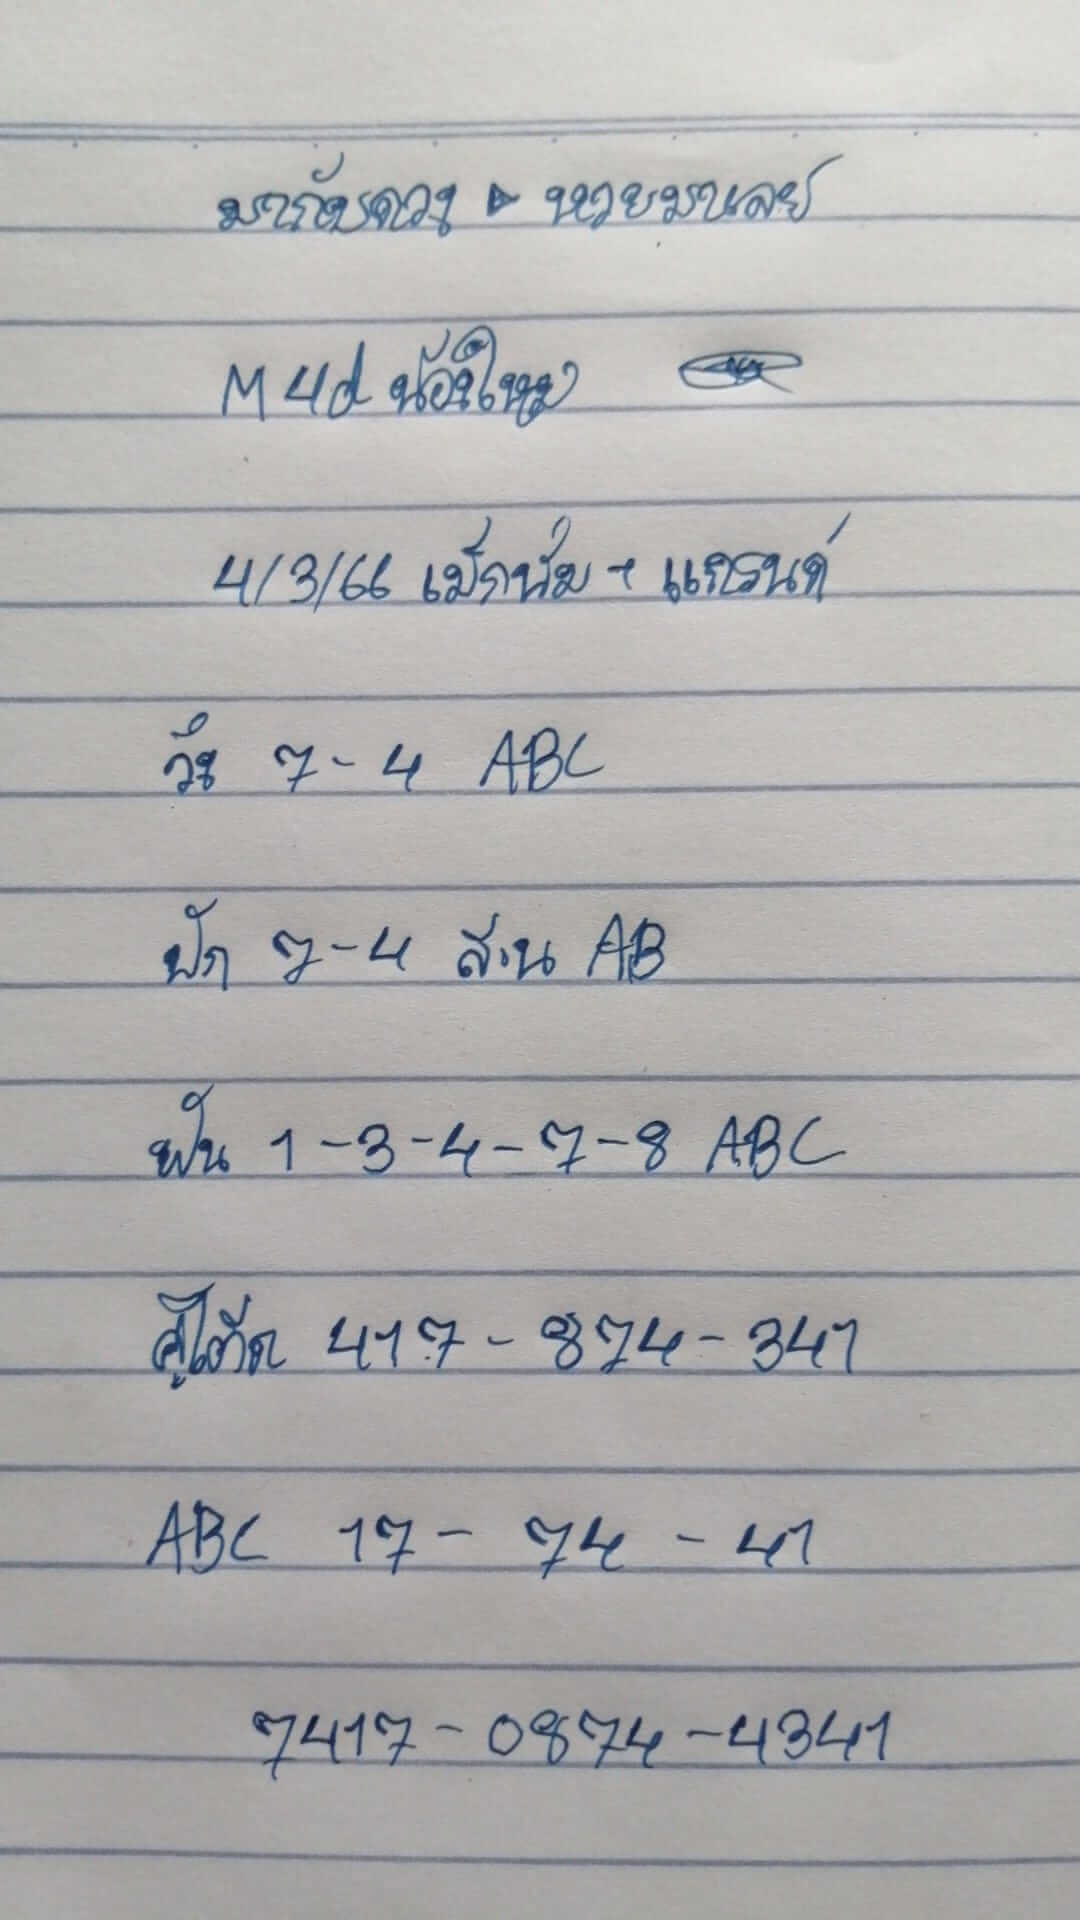 มากับดวง ▶ หวยมาเลย์
M4d น้องใหม่
4/3/66 เม็กนั่ม + แกรนด์
วิ่ง 7-4 ABC
ปัก 7-4 ส.บน AB
ฟัน 1-3-4-7-8 ABC
คู่โต๊ด 417 - 874 - 341
ABC 17 - 74 - 41
7417 - 0874 - 4341